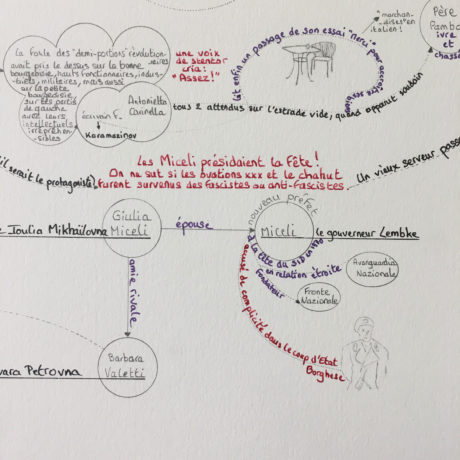 La foule des "demi-portions" révolution-
naires
avait pris le dessus sur la bonne
bourgeoisie, hauts fonctionnaires, indus-
triels, militaires, mais aussi
sur la petite
bourgeoisie,
sur des partis
de gauche
avec leurs
intellectuels
irrépréhen-
sibles
une voix
de stentor
cria:
"Assez!"
écrivain F.
Karamazinov
Antonietta
Carinella
tous 2 attendus sur l'estrade vide, quand apparut soudain
lit enfin un passage de son essai "merci"
"marchan-
dises" en
italien!
Père
Pambo
ivre
et
chassé
Un vieux serveur passe
il serait le protagoniste)
Les Miceli présidaient la Fête!
On ne sut si les bastions xxx et le chahut
furent survenus des fascistes ou anti-fascistes.
Joulia Mikhaïlovna
Giulia
Miceli
épouse
nouveau préfet
Miceli
le gouverneur Lembke
à la tête du SID en 1970
en relation étroite
Avanguardia
Nazionale
fondateur
Fronte
Nazionale
accusé de complicité dans le coup d'État
Borghese
amie rivale
Barbara
Valetti
vara Petrovna